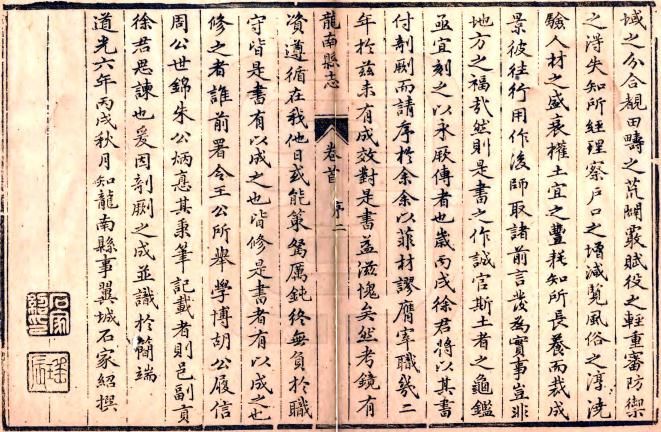 域之分合覩田疇之荒闢覈賦役之輕重審防禦
之得失知所經理察戶口之增減覽風俗之淳澆
驗人材之盛衰權土宜之豐耗知所長養而裁成
景彼往行用作後師取諸前言發為實事豈非
地方之福哉然則是書之作誠官斯土者之龜鑑
亟宜刻之以永厥傳者也歲丙戌徐君將以其書
付剞劂而請序於余余以菲材謬膺宰職幾二
年於茲未有成效對是書益滋愧矣然考鏡有
龍南縣志
卷首
序二
資遵循在我他日或能策駑厲鈍終無負於職
守皆是書有以成之也皆修是書者有以成之也
修之者誰前署令王公所舉學博胡公履信
周公世錦朱公炳熹其秉筆記載者則邑副貢
徐君思諫也爰因剞劂之成並識於簡端
道光六年丙戌秋月知龍南縣事翼城石家紹撰
石家紹印